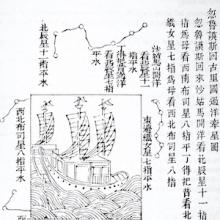 忽魯謨斯回古里國過洋牽星圖
忽魯謨斯回來沙姑馬開洋看北辰星十一
指為母看西南布司星八指平丁得把昔看北
織女星七指為母看西北布司星八指
北辰星十一指平水
沙姑馬開洋
看北辰星十一
指平水
看北辰星七指
平水
東邊織女星七指平水
西北布司星八指平水